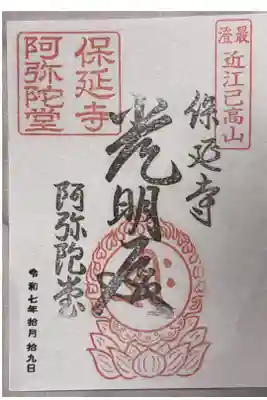 最澄
近江己高山
保延寺
光明殿
阿弥陀堂
令和七年拾月拾九日
保延寺
阿弥陀堂